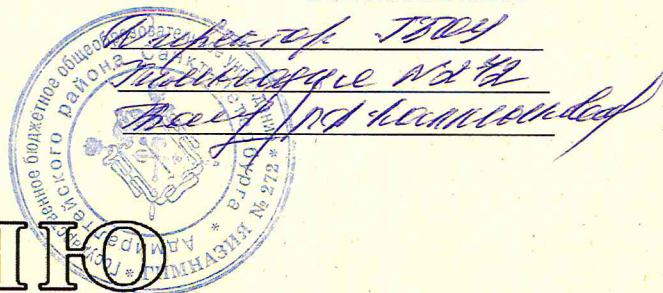 Директор ГБОУ
Гимназие №272
Государственное бюджетное общеобразовательное учреждение
Адмиралтейского района Санкт-Петербурга
* ГИМНАЗИЯ № 272 *
Ю